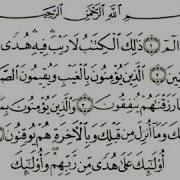 بِسْمِ ٱللَّهِ ٱلرَّحْمَٰنِ ٱلرَّحِيمِ
الٓمٓ ۝١ ذَٰلِكَ ٱلْكِتَٰبُ لَا رَيْبَ ۛ فِيهِ ۛ هُدًى
ٱلَّذِينَ يُؤْمِنُونَ بِٱلْغَيْبِ وَيُقِيمُونَ
رَزَقْنَٰهُمْ يُنفِقُونَ ۝٣ وَٱلَّذِينَ يُؤْمِنُونَ
وَمَآ أُنزِلَ مِن قَبْلِكَ وَبِٱلْءَاخِرَةِ هُمْ يُوقِنُونَ ۝٤
أُو۟لَٰٓئِكَ عَلَىٰ هُدًى مِّن رَّبِّهِمْ ۖ وَأُو۟لَٰٓئِكَ